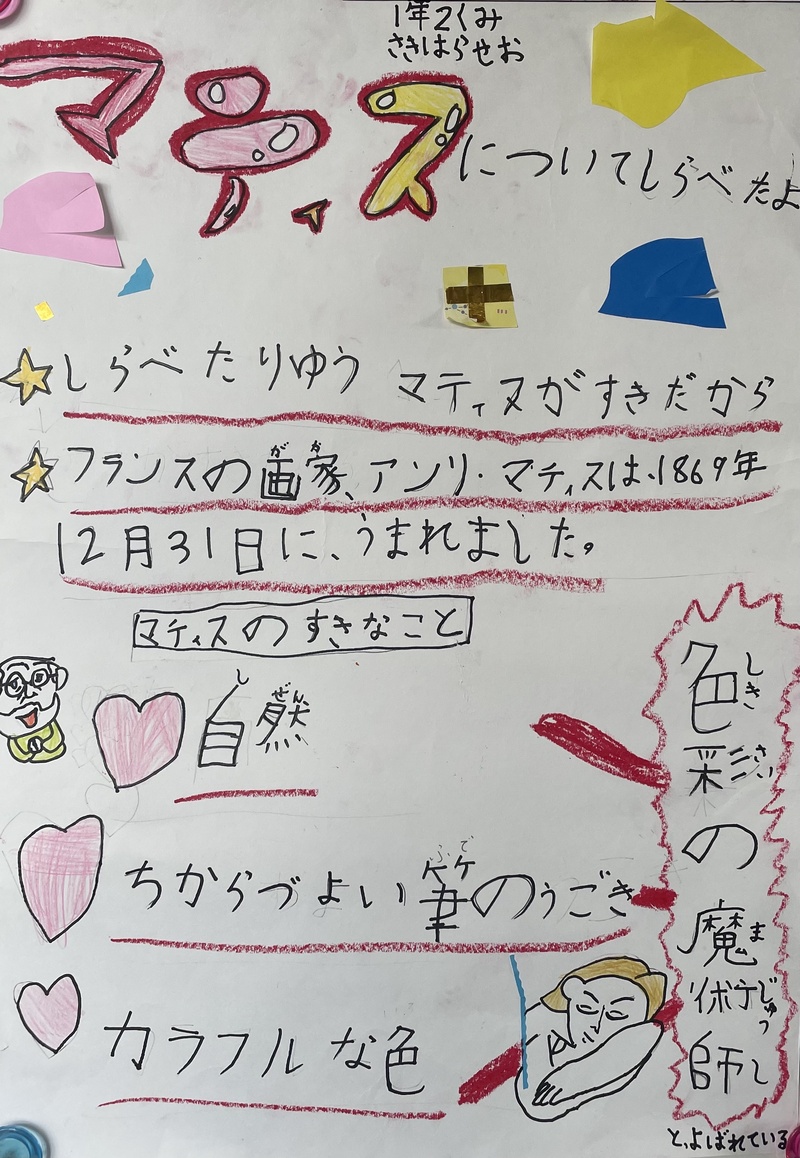 1年2くみ
さきはらせお
マティスについてしらべたよ
しらべたりゆう マティスがすきだから
がか
フランスの画家、アンリ・マティスは、1869年
12月31日に、うまれました。
マティスのすきなこと
しぜん
自然
ふで
ちからづよい筆のうごき
カラフルな色
色彩の魔術師
しきさい まじゅつし
と、よばれている